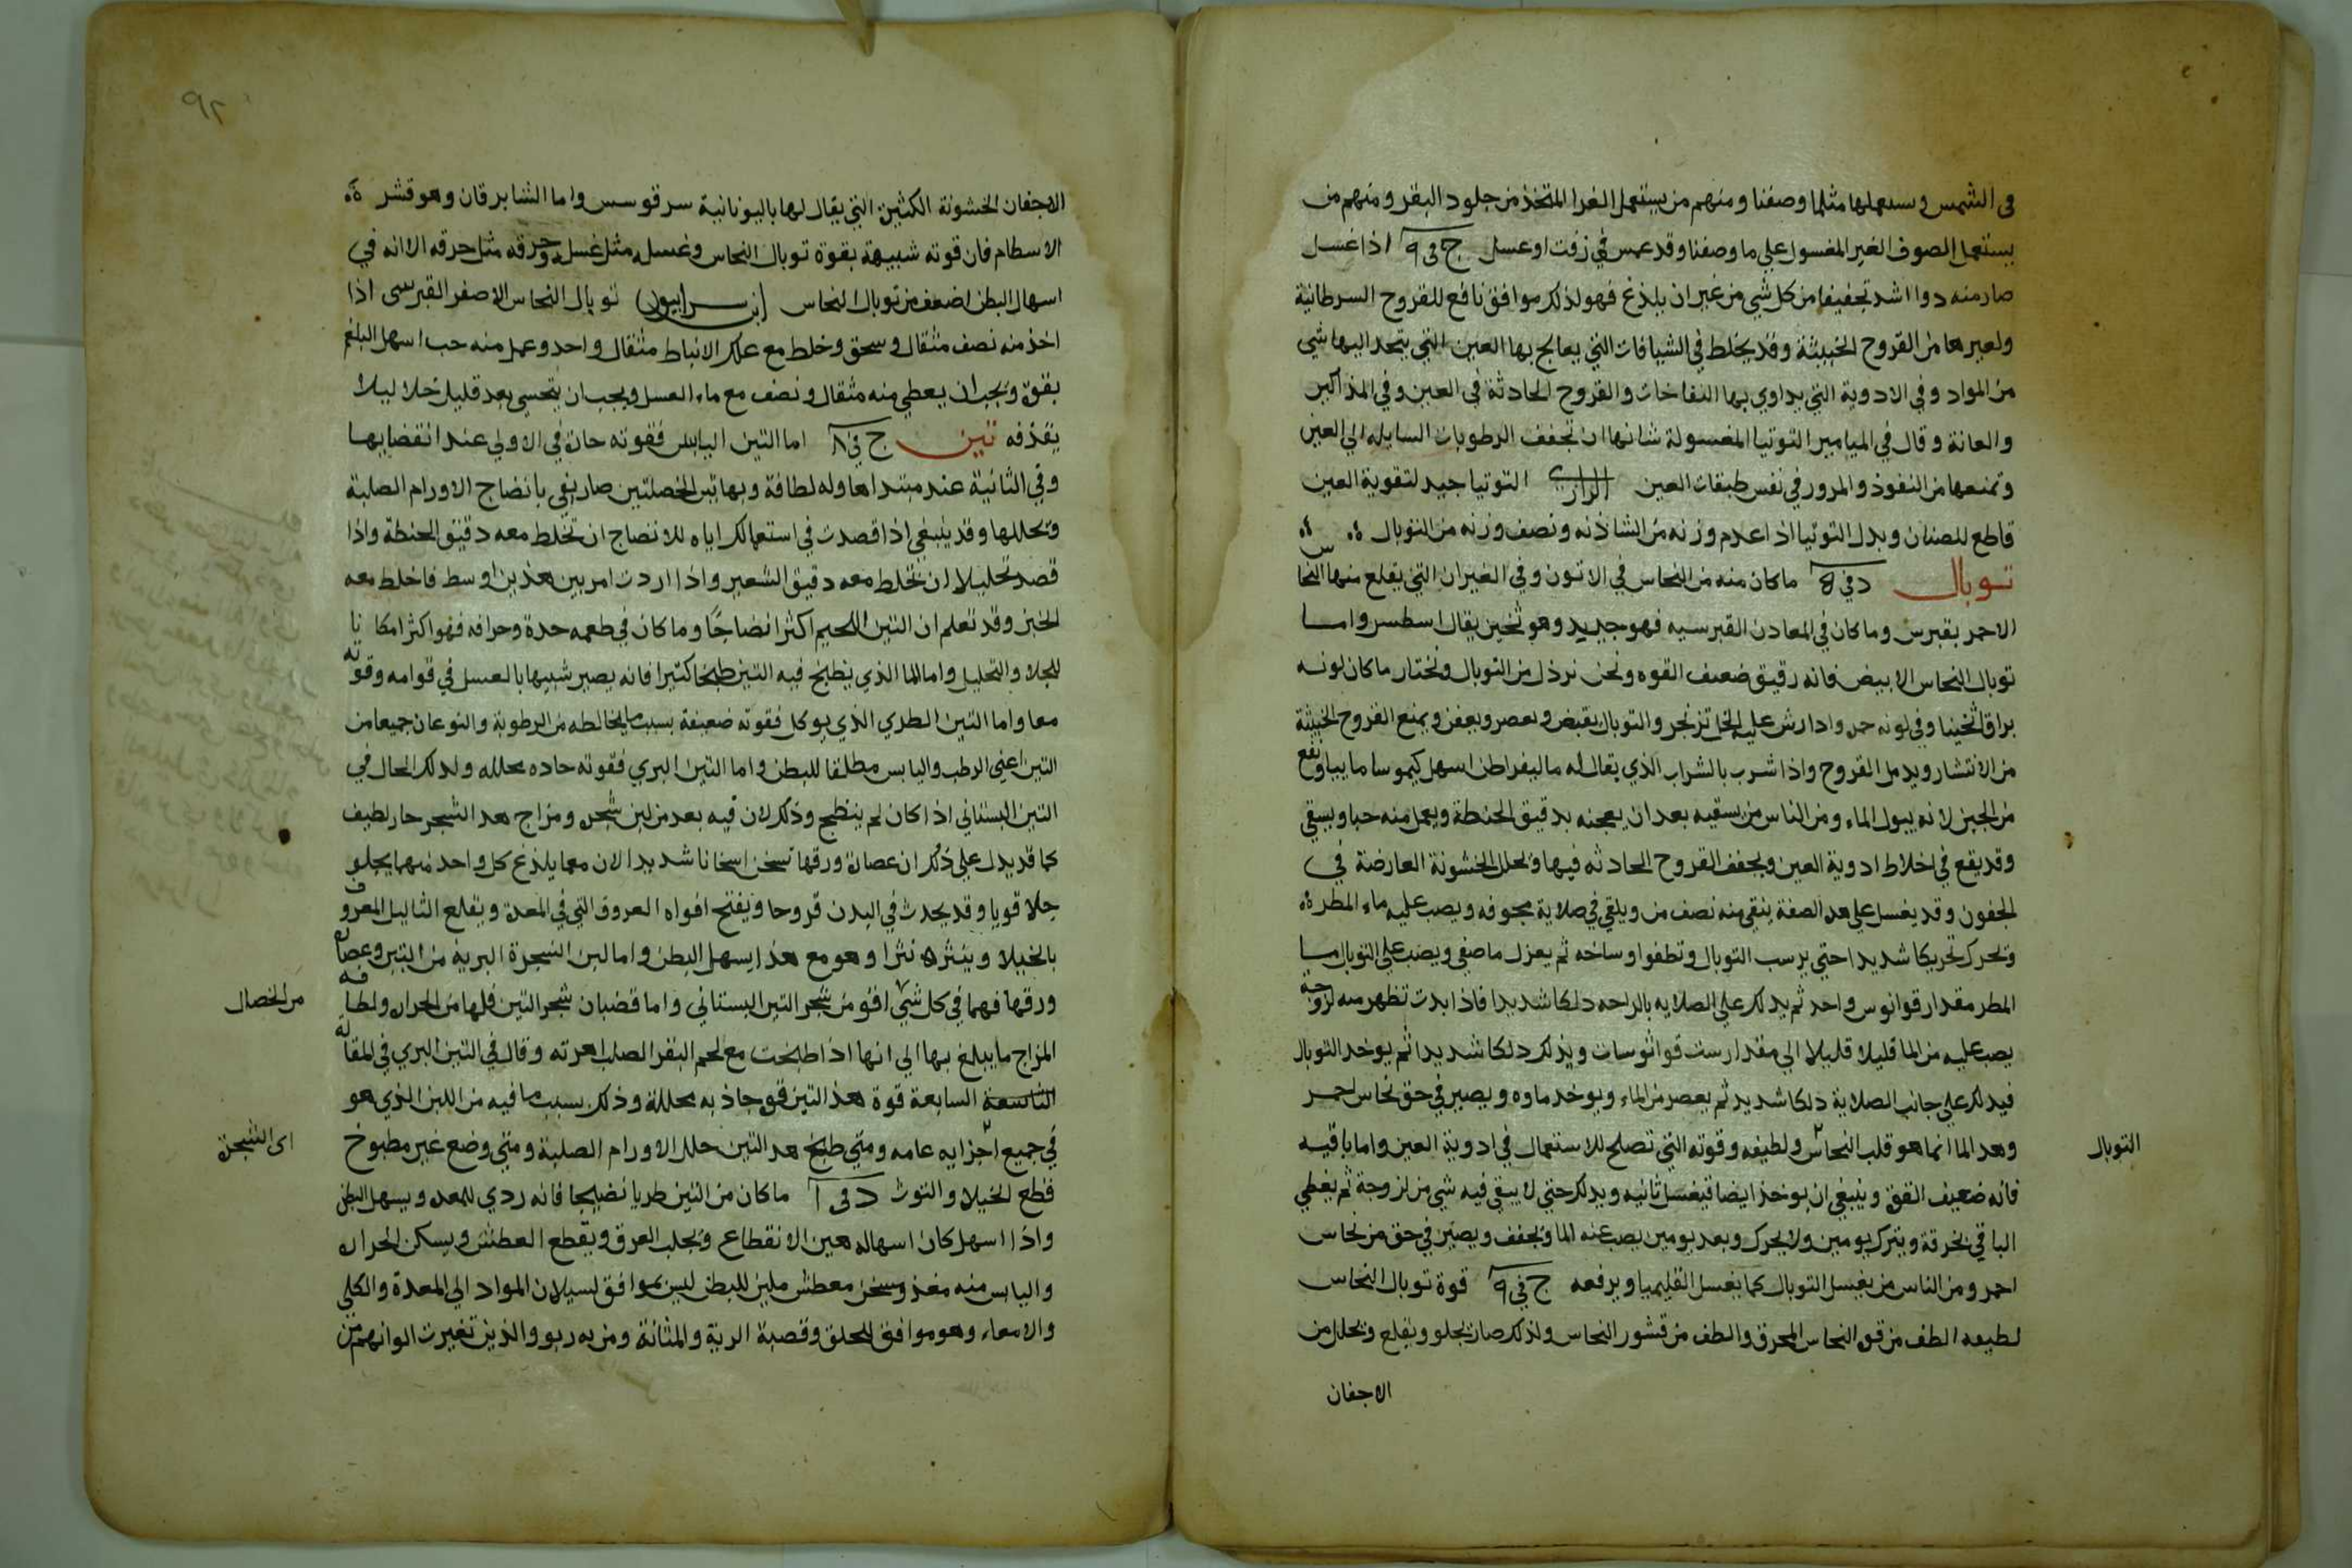 في الشمس وسىعملها مثلما وصفنا ومنهم من يستعمل الغرا المتخذ من جلود البقر ومنهم من
يستعمل الصوف الغير المغسول على ما وصفنا وقد عمس في زفت او عسل ج في ٩ اذا غسل
صار منه دوا اشد تجفيفا من كل شي من غير ان يلذع فهو لذلك موافق نافع للقروح السرطانية
ولغيرها من القروح الخبيثة وقد يخلط في الشيافات التي يعالج بها العين التي يتحد اليها شي
من المواد وفي الادوية التي يداوي بها النفاخات والقروح الحادثة في العين وفي المذاكير
والعانة وقال في الميامير التوتيا المغسولة شانها ان تجفف الرطوبات السايله الي العين
وتمنعها من النفوذ والمرور في نفس طبقات العين الرازي التوتيا جيد لتقوية العين
قاطع للصنان وبدل التوتيا اذا عدم وزنه من الشاذنه ونصف وزنه من التوبال
توبال د في ٥ ما كان منه من النحاس في الاتون وفي الغيران التي يقلع منها النحاس
الاحمر بقبرس وما كان في المعادن القبرسيه فهو جيد وهو ثخين يقال اسطسر واما
توبال النحاس الابيض فانه رقيق ضعيف القوه ونحن نرذل من التوبال ونختار ما كان لونه
براقا ثخينا وفي لونه حمره واذا رش عليه الخل تزنجر والتوبال يقبض ويعصر ويعفن ويمنع القروح الخبيثة
من الانتشار ويدمل القروح واذا شرب بالشراب الذي يقال له ماليقراطن اسهل كيموسا ماييا ونفع
من الجبن لانه يبول الماء ومن الناس من يسقيه بعد ان يعجنه بدقيق الحنطة ويعمل منه حبا ويسقي
وقد يقع في اخلاط ادوية العين ويجفف القروح الحادثه فيها ويحلل الخشونة العارضة في
الجفون وقد يغسل على هذه الصفة ينقى منه نصف من ويلقى في صلاية مجوفه ويصب عليه ماء المطر
وتحرك تحريكا شديدا حتي يرسب التوبال وتطفوا وساخه ثم يعزل ما صفي ويصب على التوبال ما
المطر مقدار قوانوس واحد ثم يدلك على الصلايه بالراحه دلكا شديدا فاذا ابدت تظهر منه لزوجه
يصب عليه من الما قليلا قليلا الي مقدار ست قواثوسات ويدلك دلكا شديدا ثم يوخد التوبال
فيدلك على جانب الصلاية دلكا شديد ثم يعصر من الماء ويوخد ماوه ويصير في حق نحاس احمر
وهذ الما انما هو قلب النحاس ولطيفه وقوته التي تصلح للاستعمال في ادوية العين واما باقيه
التوبال
فانه ضعيف القوه وينبغي ان يوخذ ايضا فيغسل ثانيه ويدلك حتي لا يبقي فيه شي من لزوجة ثم يغطي
الباقي بخرقة ويترك يومين ولا يحرك وبعد يومين يصب عنه الما ويجفف ويصير في حق من نحاس
احمر ومن الناس من يغسل التوبال كما يغسل القليميا ويرفعه ج في ٩ قوة توبال النحاس
لطيفه الطف من قوه النحاس المحرق والطف من قشور النحاس ولذلك صار يجلو ويقلع ويحلل من
الاجفان
٩٢
الاجفان الخشونة الكثيره التي يقال لها باليونانية سرقوسس واما الشابرقان وهو قشر
الاسطام فان قوته شبيهة بقوة توبال النحاس وغسله مثل غسله وحرقه مثل حرقه الا انه في
اسهال البطن اضعف من توبال النحاس ابن سرابيون توبال النحاس الاصفر القبرسى اذا
اخذ منه نصف مثقال وسحق وخلط مع علك الانباط مثقال واحد وعمل منه حب اسهل البلغم
بقوه ويجب ان يعطي منه مثقال ونصف مع ماء العسل ويجب ان يتحسي بعد قليل خلا ليلا
يقذفه تين ج في ٨ اما التين اليابس فقوته حاره في الاولي عند انقضايها
وفي الثانية عند مبتداها وله لطافة وبهاتين الخصلتين صار يفي بانضاج الاورام الصلبة
وتحللها وقد ينبغي اذا قصدت في استعمالك اياه للانضاج ان تخلط معه دقيق الحنطة واذا
قصد تحليلا ان تخلط معه دقيق الشعير واذا اردت امر بين هذين اوسط فاخلط معه
الخبز وقد تعلم ان التين اللحيم اكثر انضاجا وما كان في طعمه حدة وحرافه فهو اكثر امكانا
للجلا والتحليل واما الما الذي يطبخ فيه التين طبخا كثيرا فانه يصير شبيها بالعسل في قوامه وقوته
معا واما التين الطري الذي يوكل فقوته ضعيفة بسبب ما يخالطه من الرطوبة والنوعان جميعا من
التين اعني الرطب واليابس مطلقا للبطن واما التين البري فقوته حاده محلله ولذلك الحال في
التين البستاني اذا كان لم ينضج وذلك لان فيه بعد من لبن شجره ومزاج هذ الشجر حار لطيف
كما قد يدل على ذلك ان عصارة ورقها تسخن اسخانا شديدا لان معما يلذع كل واحد منهما يجلو
جلا قويا وقد يحدث في البدن قروحا ويفتح افواه العروق التي في المعدة ويقلع الثاليل المعروف
بالخيلا وينثره نثرا وهو مع هذا يسهل البطن واما لبن الشجرة البرية من التين وعصارة
ورقها فهما في كل شي اقوى من شجر التين البستاني واما قضبان شجر التين فلها من الحراره ولطافه
من الخصال
المزاج ما يبلغ بها الي انها اذا طبخت مع لحم البقر الصلب اهرته وقال في التين البري في المقالة
التاسعة السابعة قوة هذ التين قوه جاذبه محللة وذلك بسبب ما فيه من اللبن الذي هو
في جميع اجزايه عامه ومتي طبخ هذ التين حلل الاورام الصلبة ومتي وضع غير مطبوخ
اى الشجرة
قطع الخيلا والتوث د في ا ما كان من التين طريا نضيجا فانه ردي للمعده ويسهل البطن
واذا اسهل كان اسهاله هين الانقطاع ويجلب العرق ويقطع العطش ويسكن الحراره
واليابس منه مغذ مسخن معطش ملين للبطن ليس بموافق لسيلان المواد الي المعدة والكلي
والامعاء وهو موافق للحلق وقصبة الرية والمثانة ومن به ربو والذين تغيرت الوانهم من